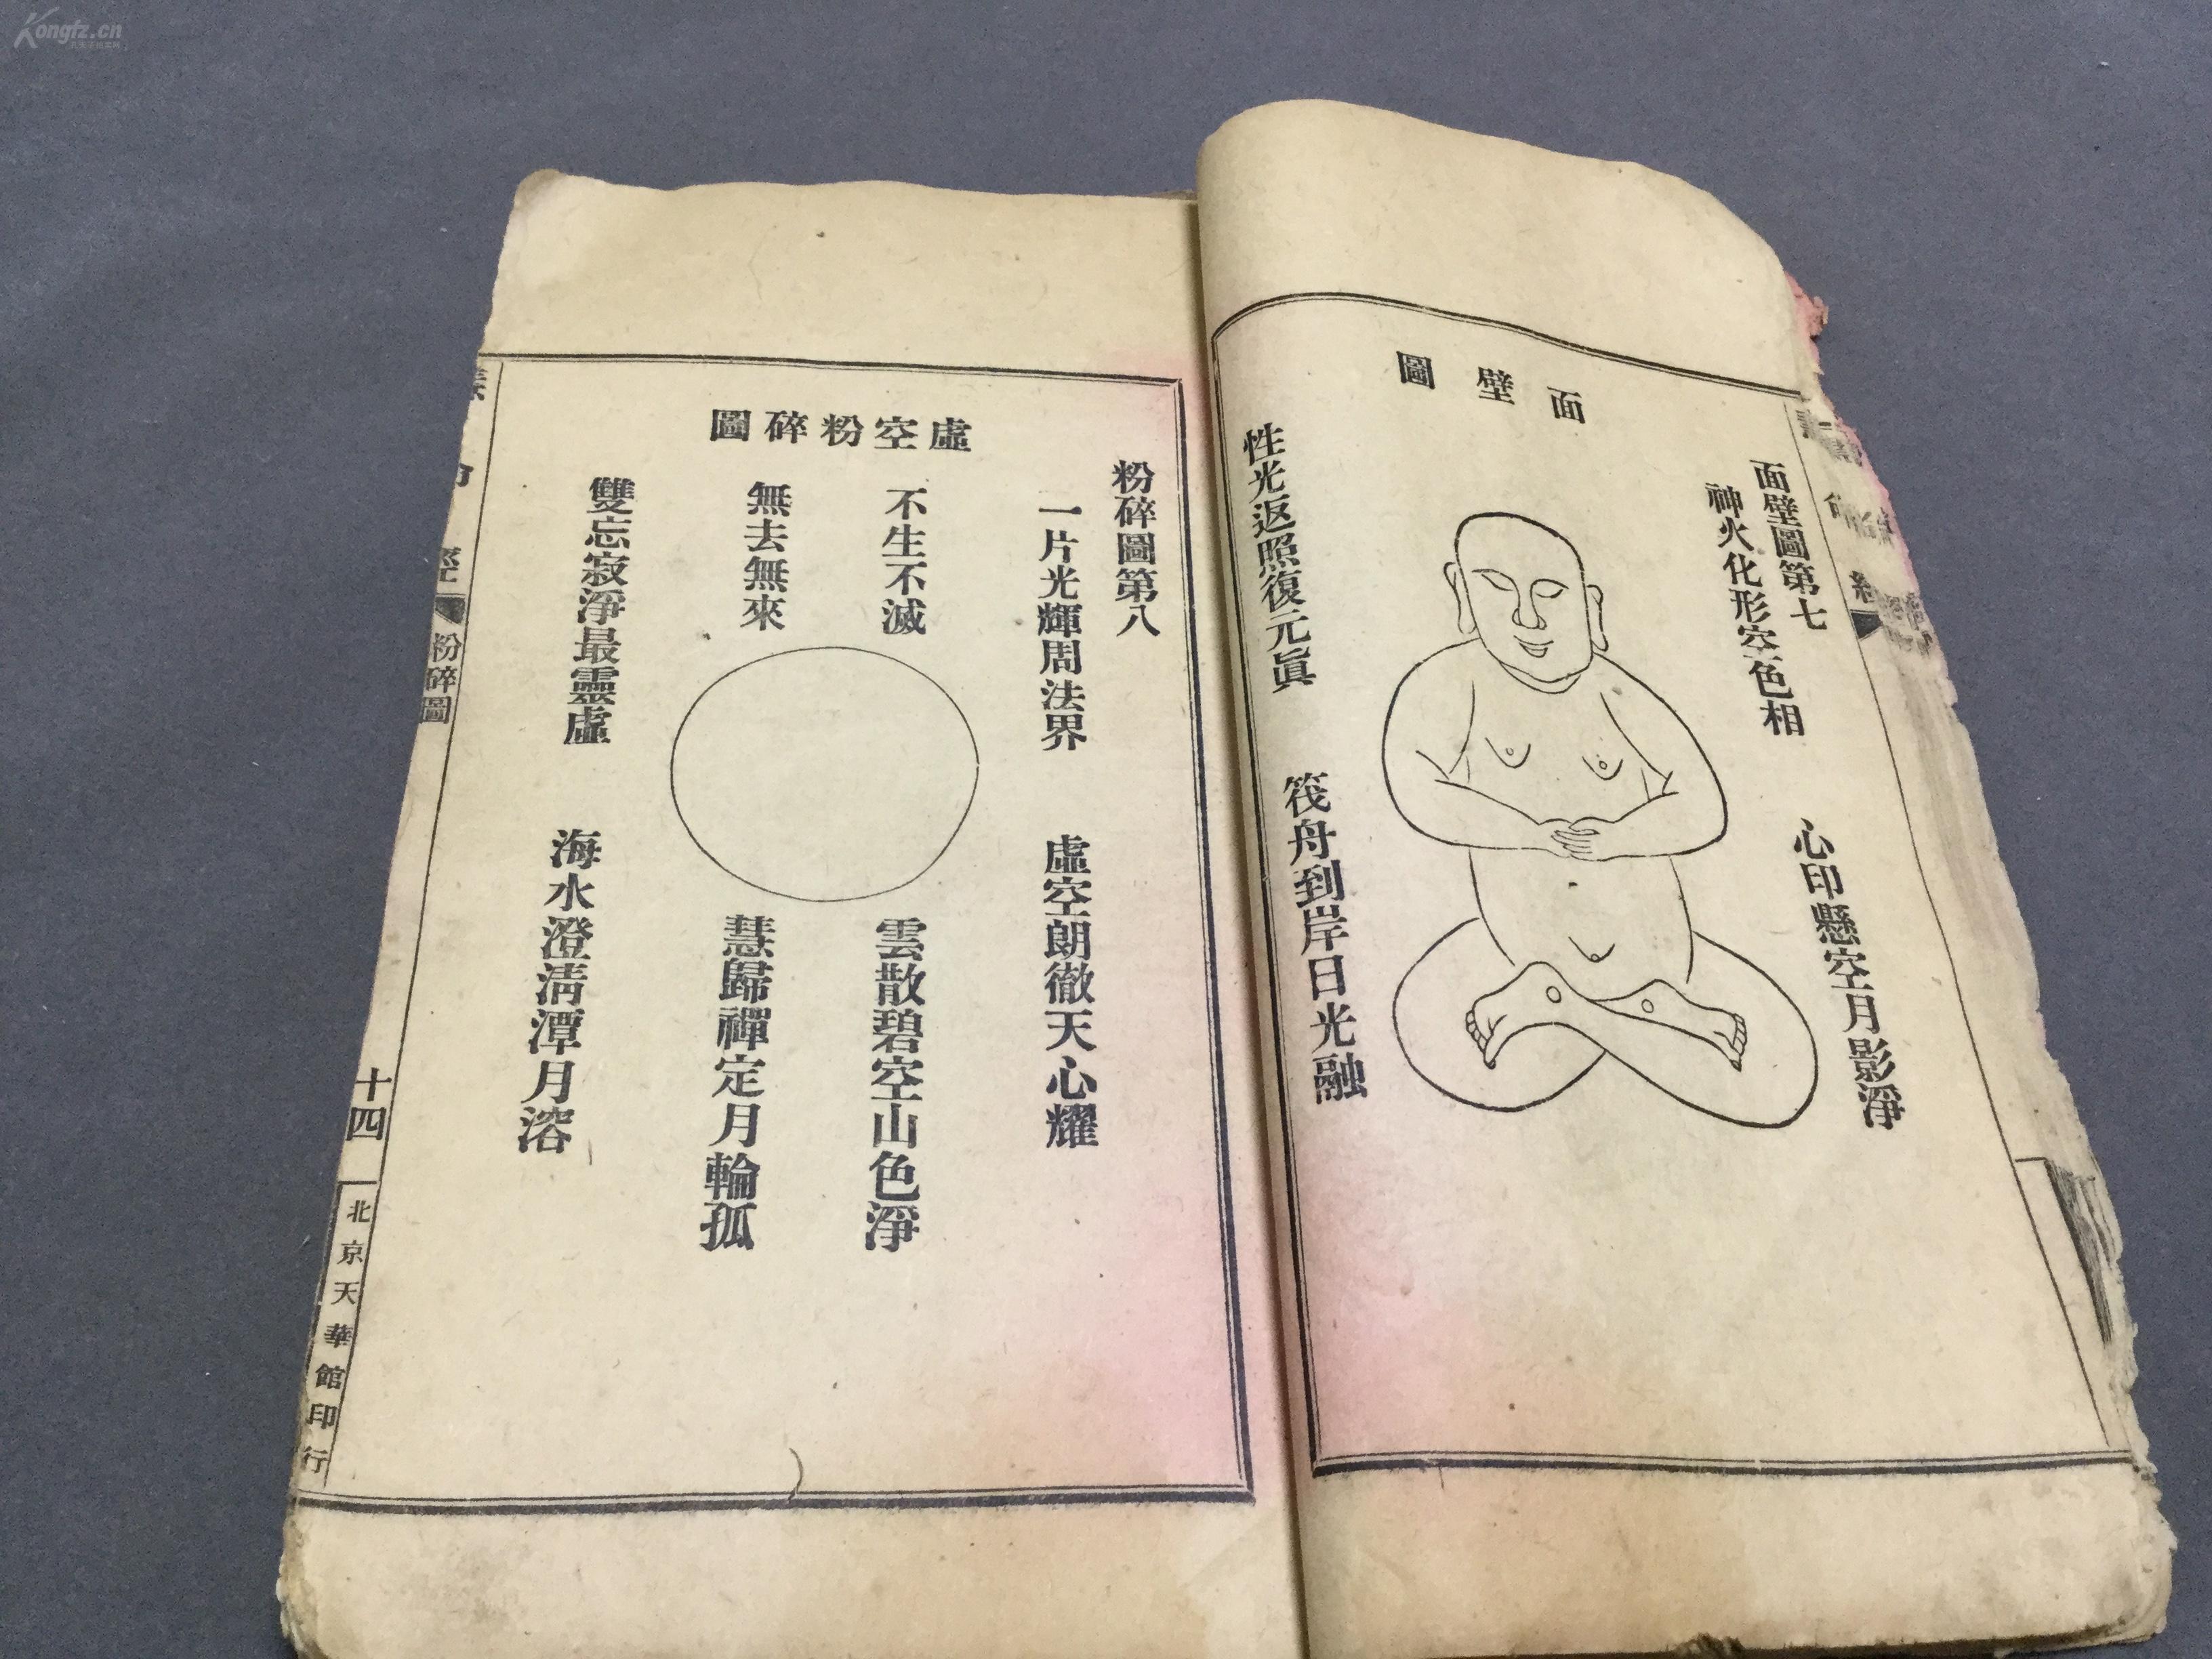 Kongfz.cn
面壁圖第七
面壁圖
神火化形空色相
心印懸空月影淨
性光返照復元眞
筏舟到岸日光融
粉碎圖第八
虛空粉碎圖
一片光輝周法界
虛空朗徹天心耀
不生不滅
雲散碧空山色淨
無去無來
慧歸禪定月輪孤
雙忘寂淨最靈虛
海水澄淸潭月溶
粉碎圖
十四
北京天華館印行